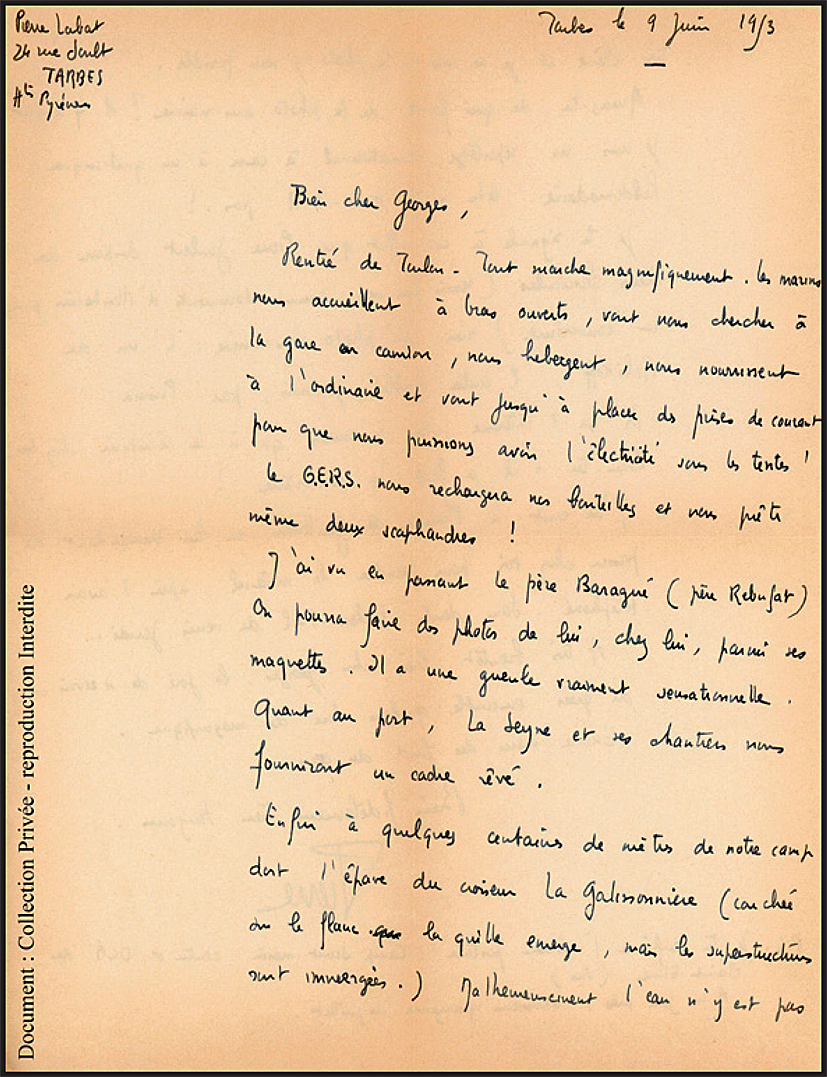 Pierre Labat
24 rue Soult
TARBES
Htes Pyrénées
Tarbes le 9 Juin 1953
Bien cher Georges,
Rentré de Toulon - Tout marche magnifiquement. Les marins
nous accueillent à bras ouverts, vont nous chercher à
la gare en camion, nous hebergent, nous nourrissent
à l'ordinaire et vont jusqu'à placer des prises de courant
pour que nous puissions avoir l'électricité sous les tentes !
Le G.E.R.S. nous rechargera nos bouteilles et nous prête
même deux scaphandres !
J'ai vu en passant le père Baragué (père Rebufat)
On pourra faire des photos de lui, chez lui, parmi ses
maquettes. Il a une gueule vraiment sensationnelle.
Quant au port, La Seyne et ses chantiers nous
fourniront un cadre rêvé.
Enfin à quelques centaines de mètres de notre camp
dort l'épave du croiseur La Galissonnière (couché
sur le flanc la quille emerge, mais les superstructures
sont immergées.) Malheureusement l'eau n'y est pas
Document : Collection Privée - reproduction Interdite